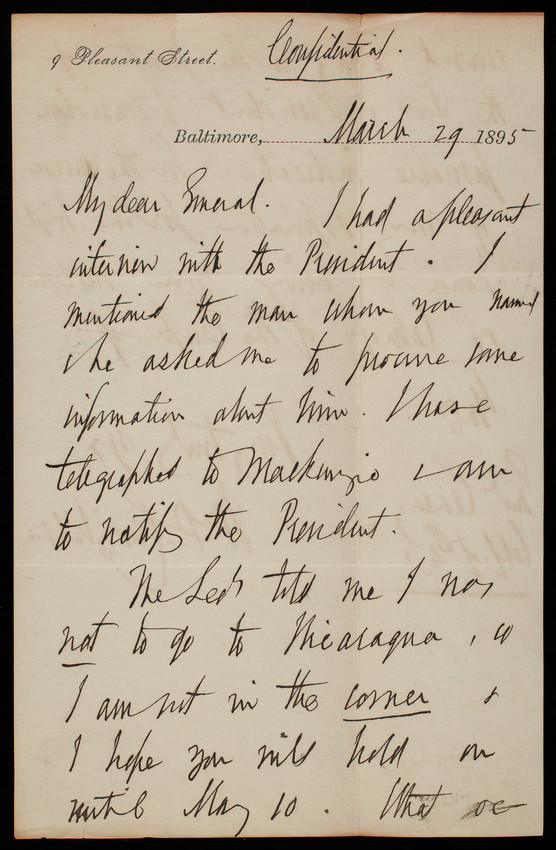 9 Pleasant Street.
Confidential.
Baltimore, March 29 1895
My dear General. I had a pleasant
interview with the President. I
mentioned the man whom you named
& he asked me to procure some
information about him. I have
telegraphed to Mackenzie & am
to notify the President.
The Secy told me I was
not to go to Nicaragua, so
I am not in the corner &
I hope you will hold on
until May 10. What